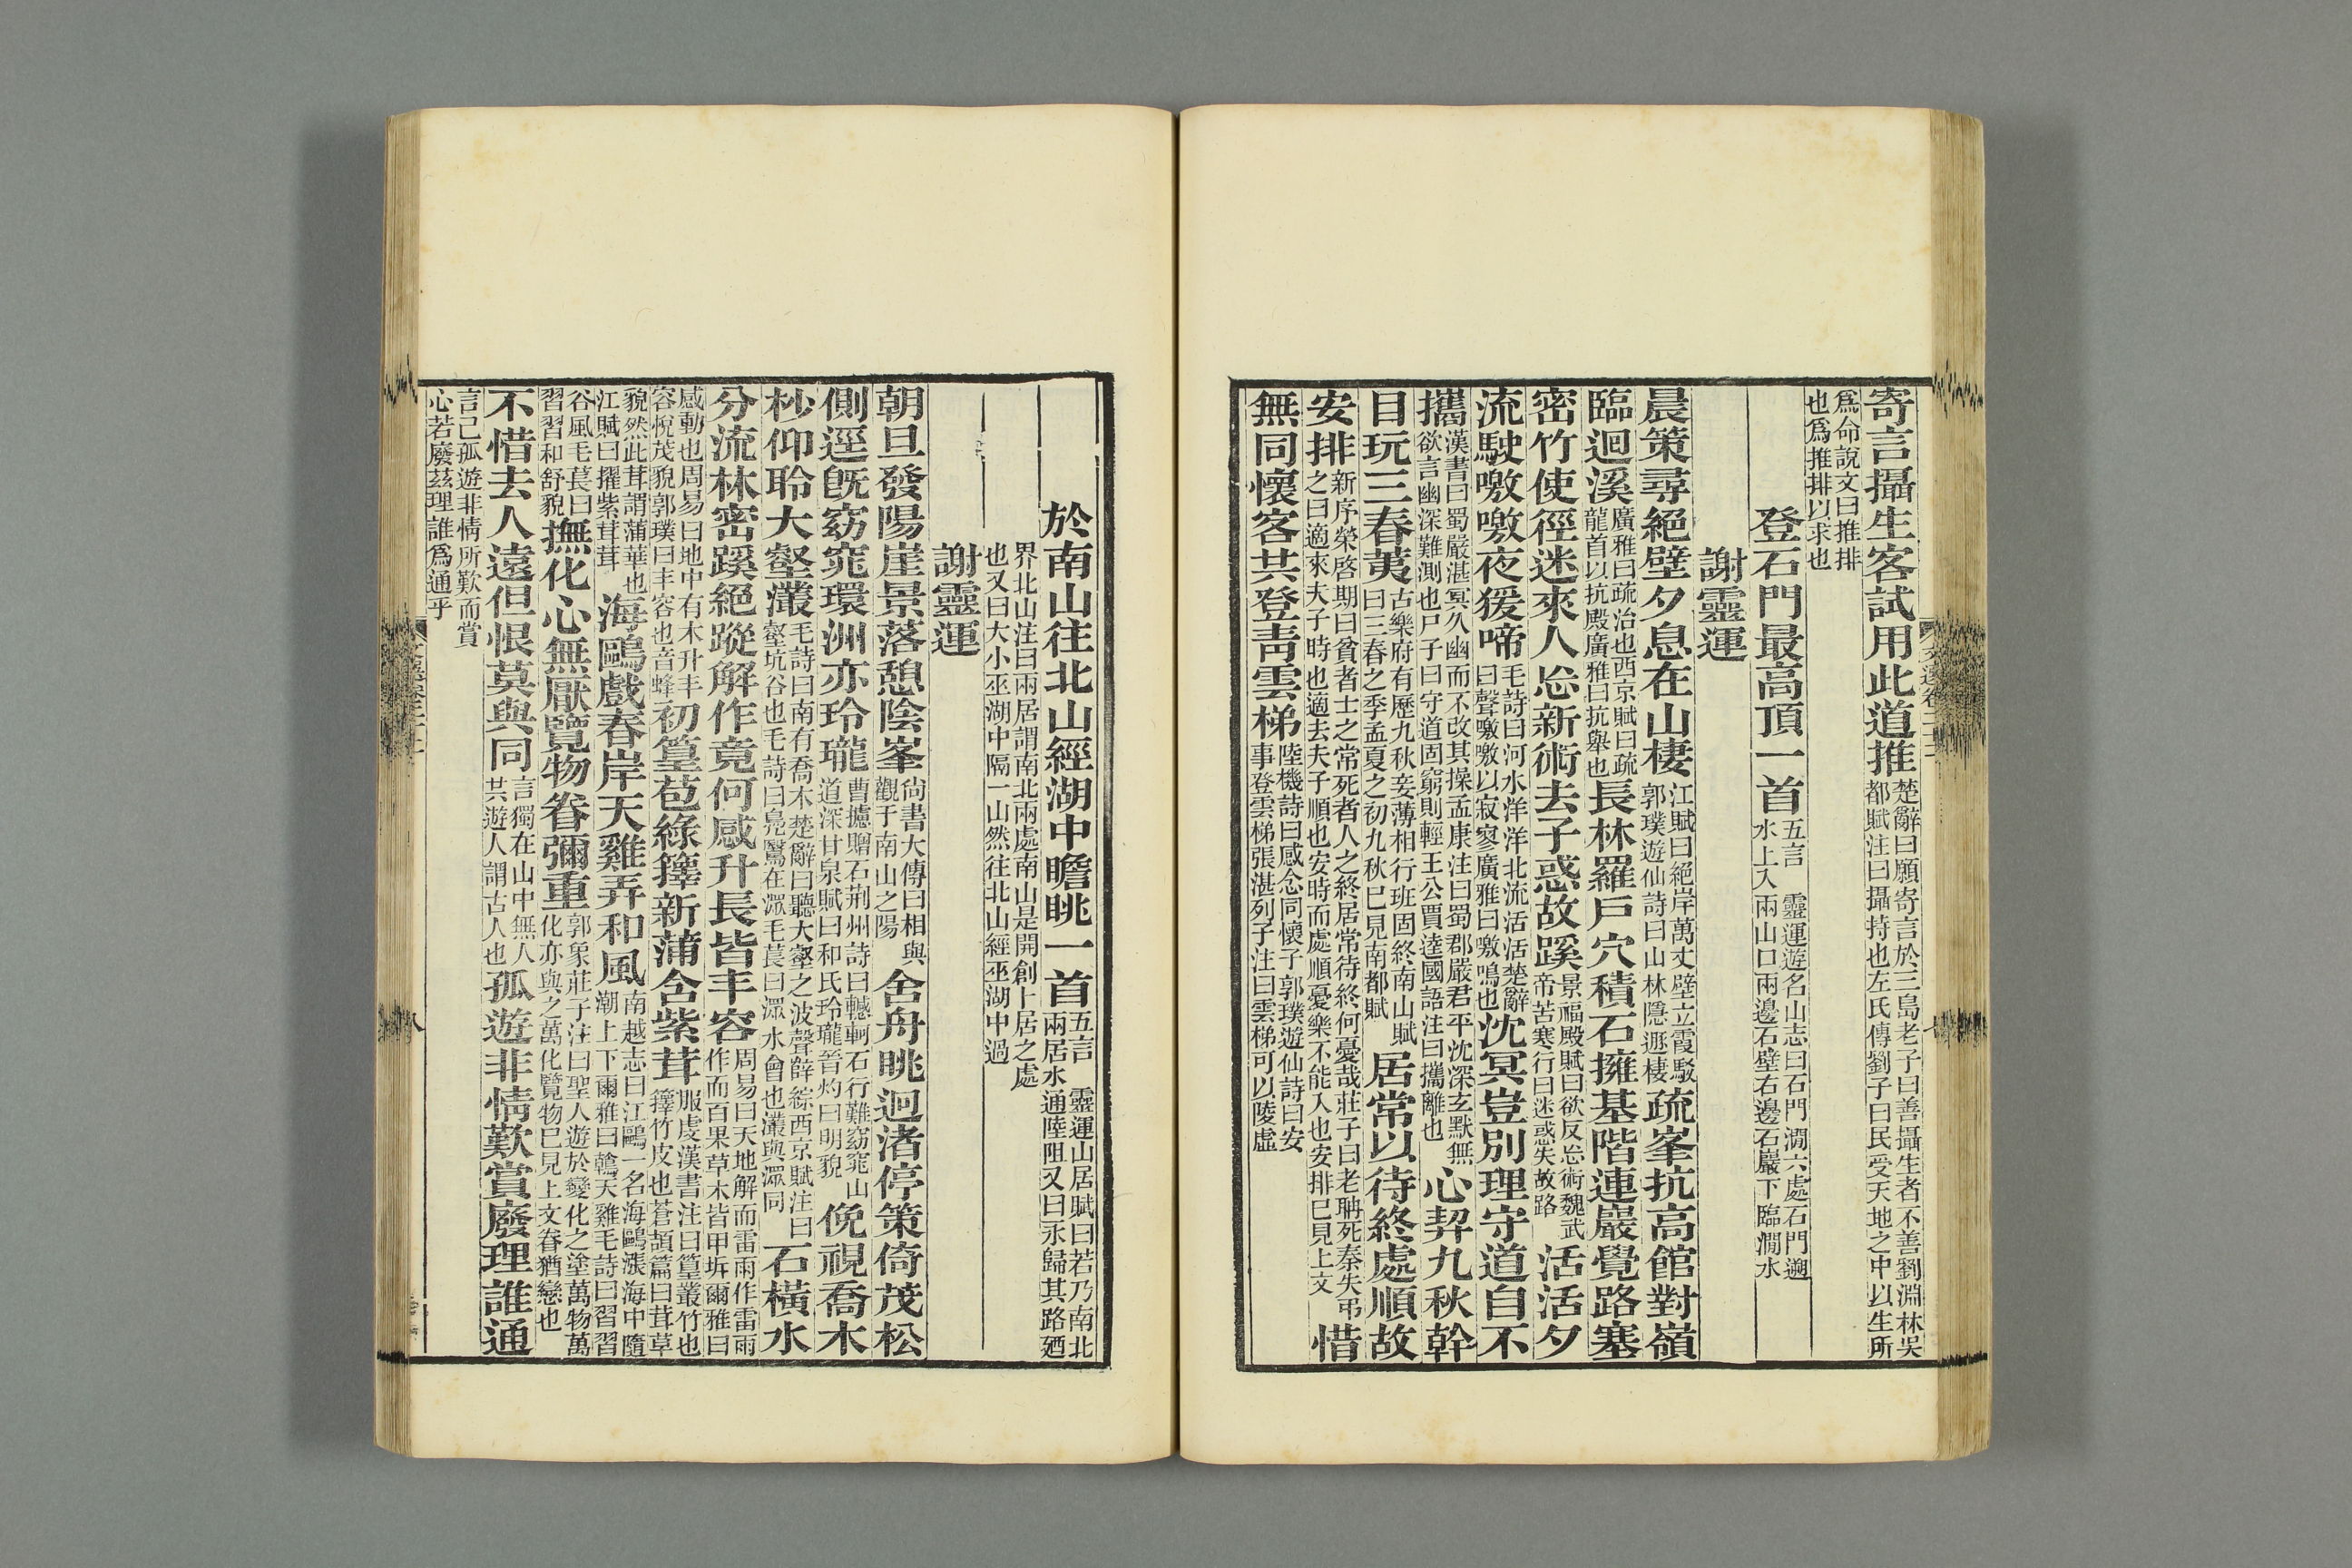 寄言攝生客試用此道推楚辭曰願寄言於三鳥老子曰善攝生者不善劉淵林吳都賦注曰攝持也左氏傳劉子曰民受天地之中以生所
爲命說文曰推排也爲推排以求也
登石門最高頂一首五言 靈運遊名山志曰石門澗六處石門遡水上入兩山口兩邊石壁右邊石巖下臨澗水
謝靈運
晨策尋絕壁夕息在山棲江賦曰絕岸萬丈壁立霞駮郭璞遊仙詩曰山林隱遯棲疏峯抗高館對嶺
臨迴溪廣雅曰疏治也西京賦曰疏龍首以抗殿廣雅曰抗舉也長林羅戶穴積石擁基階連巖覺路塞
密竹使徑迷來人忘新術去子惑故蹊景福殿賦曰欲反忘術魏武帝苦寒行曰迷惑失故路活活夕
流駛噭噭夜猨啼毛詩曰河水洋洋北流活活楚辭曰聲噭噭以寂寥廣雅曰噭鳴也沈冥豈別理守道自不
攜漢書曰蜀嚴湛冥久幽而不改其操孟康注曰蜀郡嚴君平沈深玄默無欲言幽深難測也尸子曰守道固窮則輕王公賈逵國語注曰攜離也心契九秋幹
目玩三春荑古樂府有歷九秋妾薄相行班固終南山賦曰三春之季孟夏之初九秋巳見南都賦居常以待終處順故
安排新序榮啓期曰貧者士之常死者人之終居常待終何憂哉莊子曰老聃死秦失弔之曰適來夫子時也適去夫子順也安時而處順憂樂不能入也安排巳見上文惜
無同懷客共登青雲梯陸機詩曰感念同懷子郭璞遊仙詩曰安事登雲梯張湛列子注曰雲梯可以陵虛
於南山往北山經湖中瞻眺一首五言 靈運山居賦曰若乃南北兩居水通陸阻又曰永歸其路廼
界北山注曰兩居謂南北兩處南山是開創卜居之處也又曰大小巫湖中隔一山然往北山經巫湖中過
謝靈運
朝旦發陽崖景落憩陰峯尚書大傳曰相與觀于南山之陽舍舟眺迴渚停策倚茂松
側逕旣窈窕環洲亦玲瓏曹攄贈石荆州詩曰轗軻石行難窈窕山道深甘泉賦曰和氏玲瓏晉灼曰明貌俛視喬木
杪仰聆大壑灇毛詩曰南有喬木楚辭曰聽大壑之波聲薛綜西京賦注曰壑坑谷也毛詩曰鳧鷖在潀毛萇曰潀水會也灇與潀同石橫水
分流林密蹊絕蹤解作竟何感升長皆丰容周易曰天地解而雷雨作雷雨作而百果草木皆甲坼爾雅曰
感動也周易曰地中有木升丰容悅茂貌郭璞曰丰容也音蜂初篁苞綠籜新蒲含紫茸服虔漢書注曰篁叢竹也籜竹皮也蒼頡篇曰茸草
貌然此茸謂蒲華也江賦曰擢紫茸茸海鷗戲春岸天雞弄和風南越志曰江鷗一名海鷗漲海中隨潮上下爾雅曰鶾天雞毛詩曰習習
谷風毛萇曰習習和舒貌撫化心無厭覽物眷彌重郭象莊子注曰聖人遊於變化之塗萬物萬化亦與之萬化覽物巳見上文眷猶戀也
不惜去人遠但恨莫與同言獨在山中無人共遊人謂古人也孤遊非情歎賞廢理誰通
言己孤遊非情所歎而賞心若廢茲理誰爲通乎